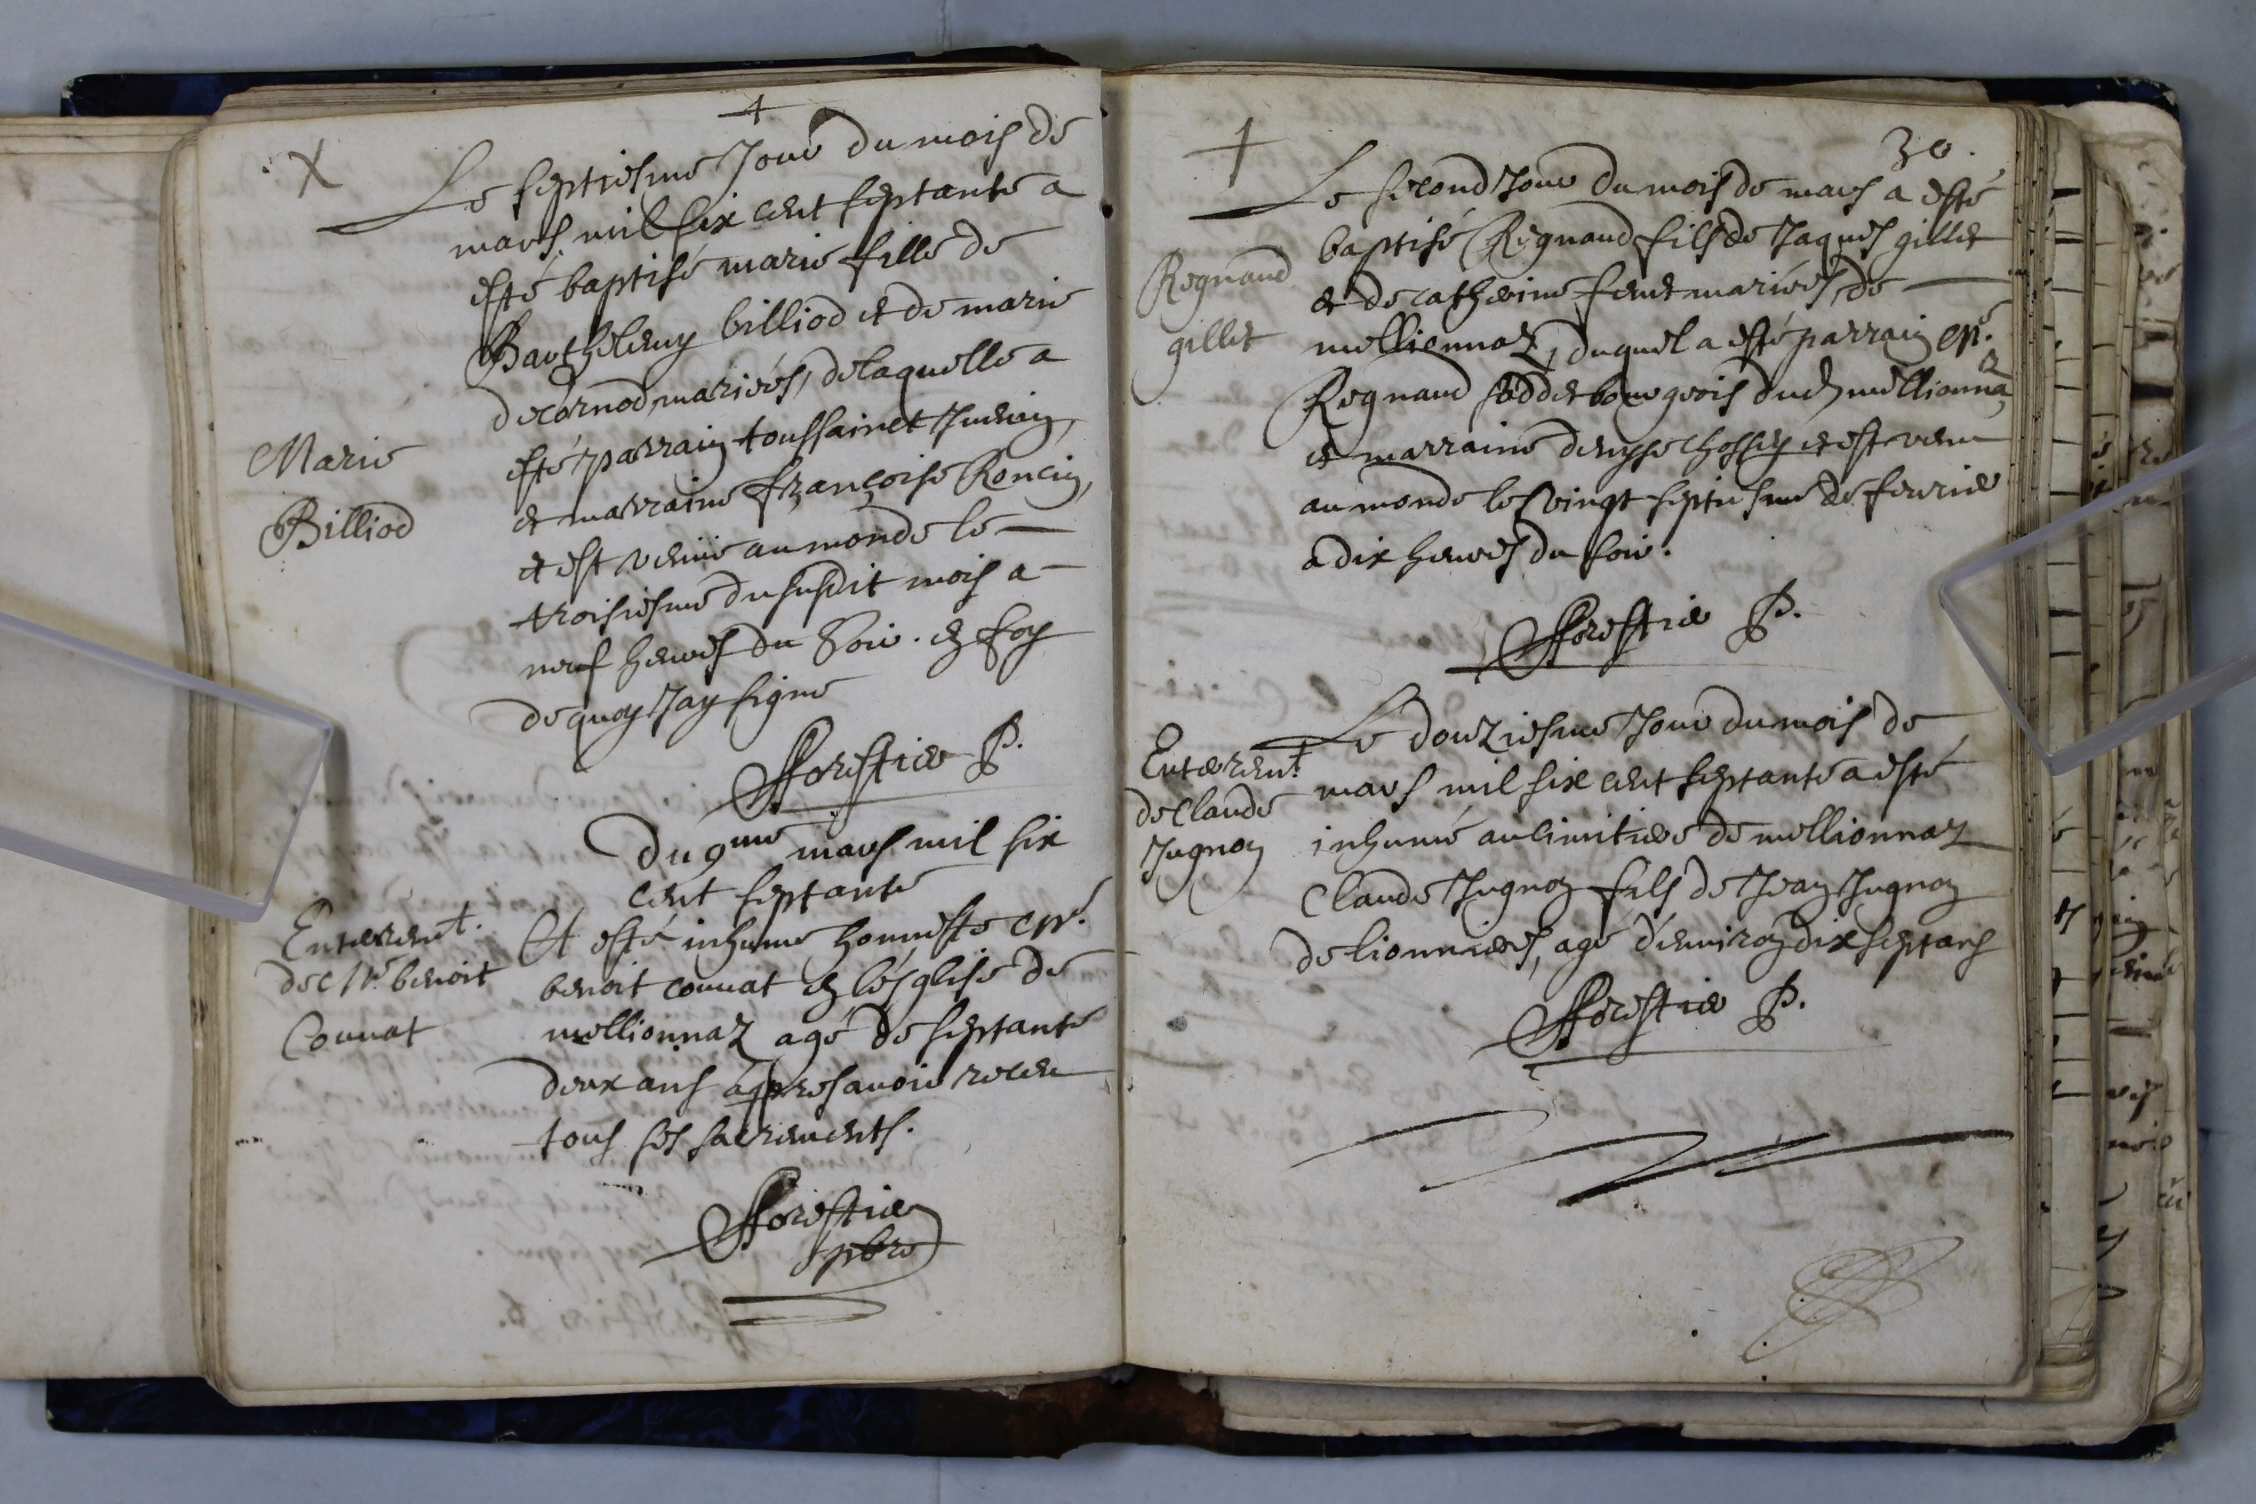 Le septiesme Jour du mois de
mars mil six cent septante a
esté baptisé marie fille de
Barthelemy billiod et de marie
decornod mariés, de laquelle a
esté parrain toussainct
et marraine françoise Roncin,
et est venüe au monde le
troisiesme du susdit mois a
neuf heures du Soir. en foy
de quoy Jay signe
Marie
Billiod
fforestier P.
Du 9me mars mil six
cent septante
A esté inhumé honneste Mre.
benoit Connat en lésglise de
mellionnaz agé de septante
deux ans áppres avoir receu
tous ses sacrements.
Enterremt.
de Mre. benoit
Connat
fforestier
pbre
30.
Le second Jour du mois de mars a esté
baptisé Regnaud fils de Jaques gillet
et de catherine mariés, de
mellionnaz, duquel a esté parrain Mre.
Regnaud bourgeois dud mellionna
et marraine denyse et est venu
au monde le vingt septiesme de feurier
a dix heures du soir.
Regnaud
gillet
fforestier P.
Le douziesme Jour du mois de
mars mil six cent septante a esté
inhumé au cimitiere de mellionnaz
Claude Jugnon fils de Jean Jugnon
de lionnieres, agé d'enuiron dix sept ans
Enterremt.
de Claude
Jugnon
fforestier P.